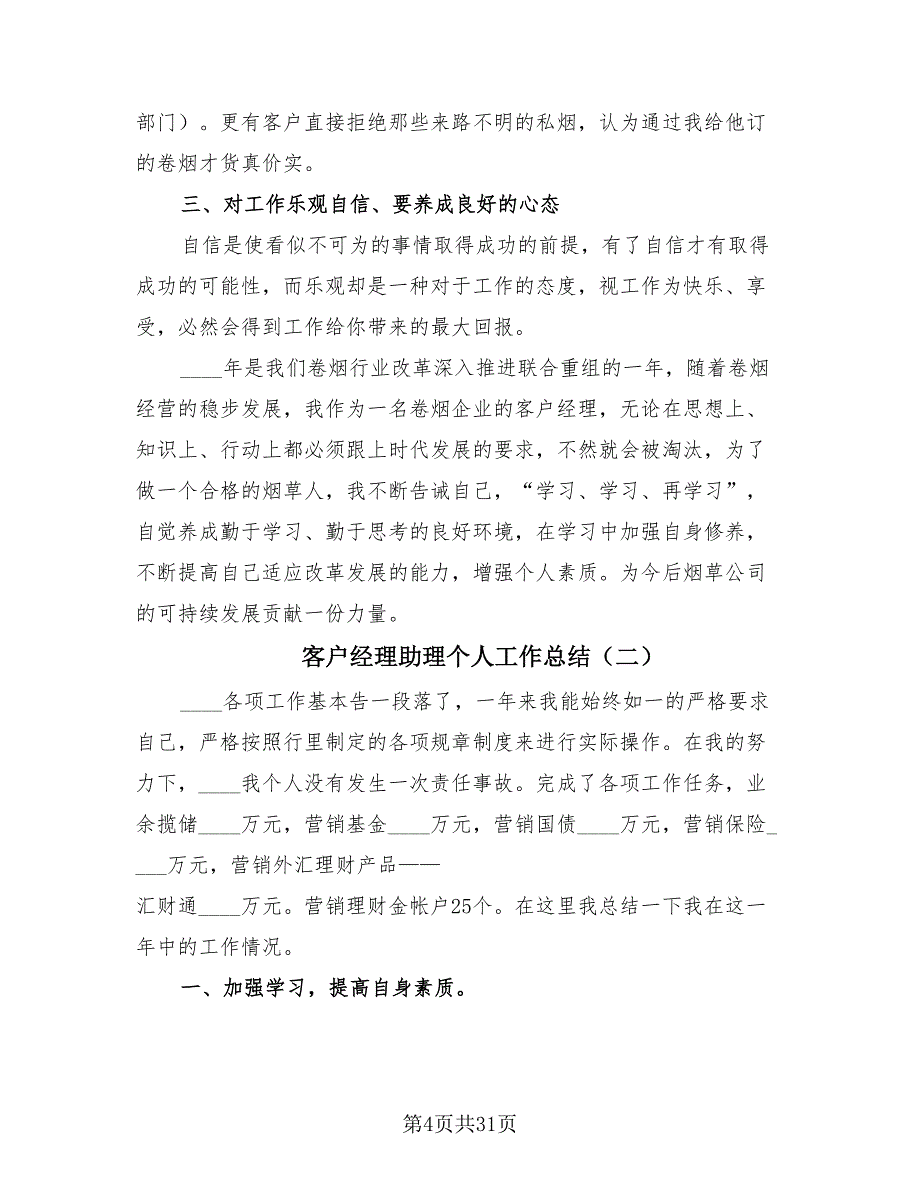 部门）。更有客户直接拒绝那些来路不明的私烟，认为通过我给他订
的卷烟才货真价实。
三、对工作乐观自信、要养成良好的心态
自信是使看似不可为的事情取得成功的前提，有了自信才有取得
成功的可能性，而乐观却是一种对于工作的态度，视工作为快乐、享
受，必然会得到工作给你带来的最大回报。
____年是我们卷烟行业改革深入推进联合重组的一年，随着卷烟
经营的稳步发展，我作为一名卷烟企业的客户经理，无论在思想上、
知识上、行动上都必须跟上时代发展的要求，不然就会被淘汰，为了
做一个合格的烟草人，我不断告诫自己，“学习、学习、再学习”，
自觉养成勤于学习、勤于思考的良好环境，在学习中加强自身修养，
不断提高自己适应改革发展的能力，增强个人素质。为今后烟草公司
的可持续发展贡献一份力量。
客户经理助理个人工作总结（二）
____各项工作基本告一段落了，一年来我能始终如一的严格要求
自己，严格按照行里制定的各项规章制度来进行实际操作。在我的努
力下，____我个人没有发生一次责任事故。完成了各项工作任务，业
余揽储____万元，营销基金____万元，营销国债____万元，营销保险_
___万元，营销外汇理财产品——
汇财通____万元。营销理财金帐户25个。在这里我总结一下我在这一
年中的工作情况。
一、加强学习，提高自身素质。
第4页共31页